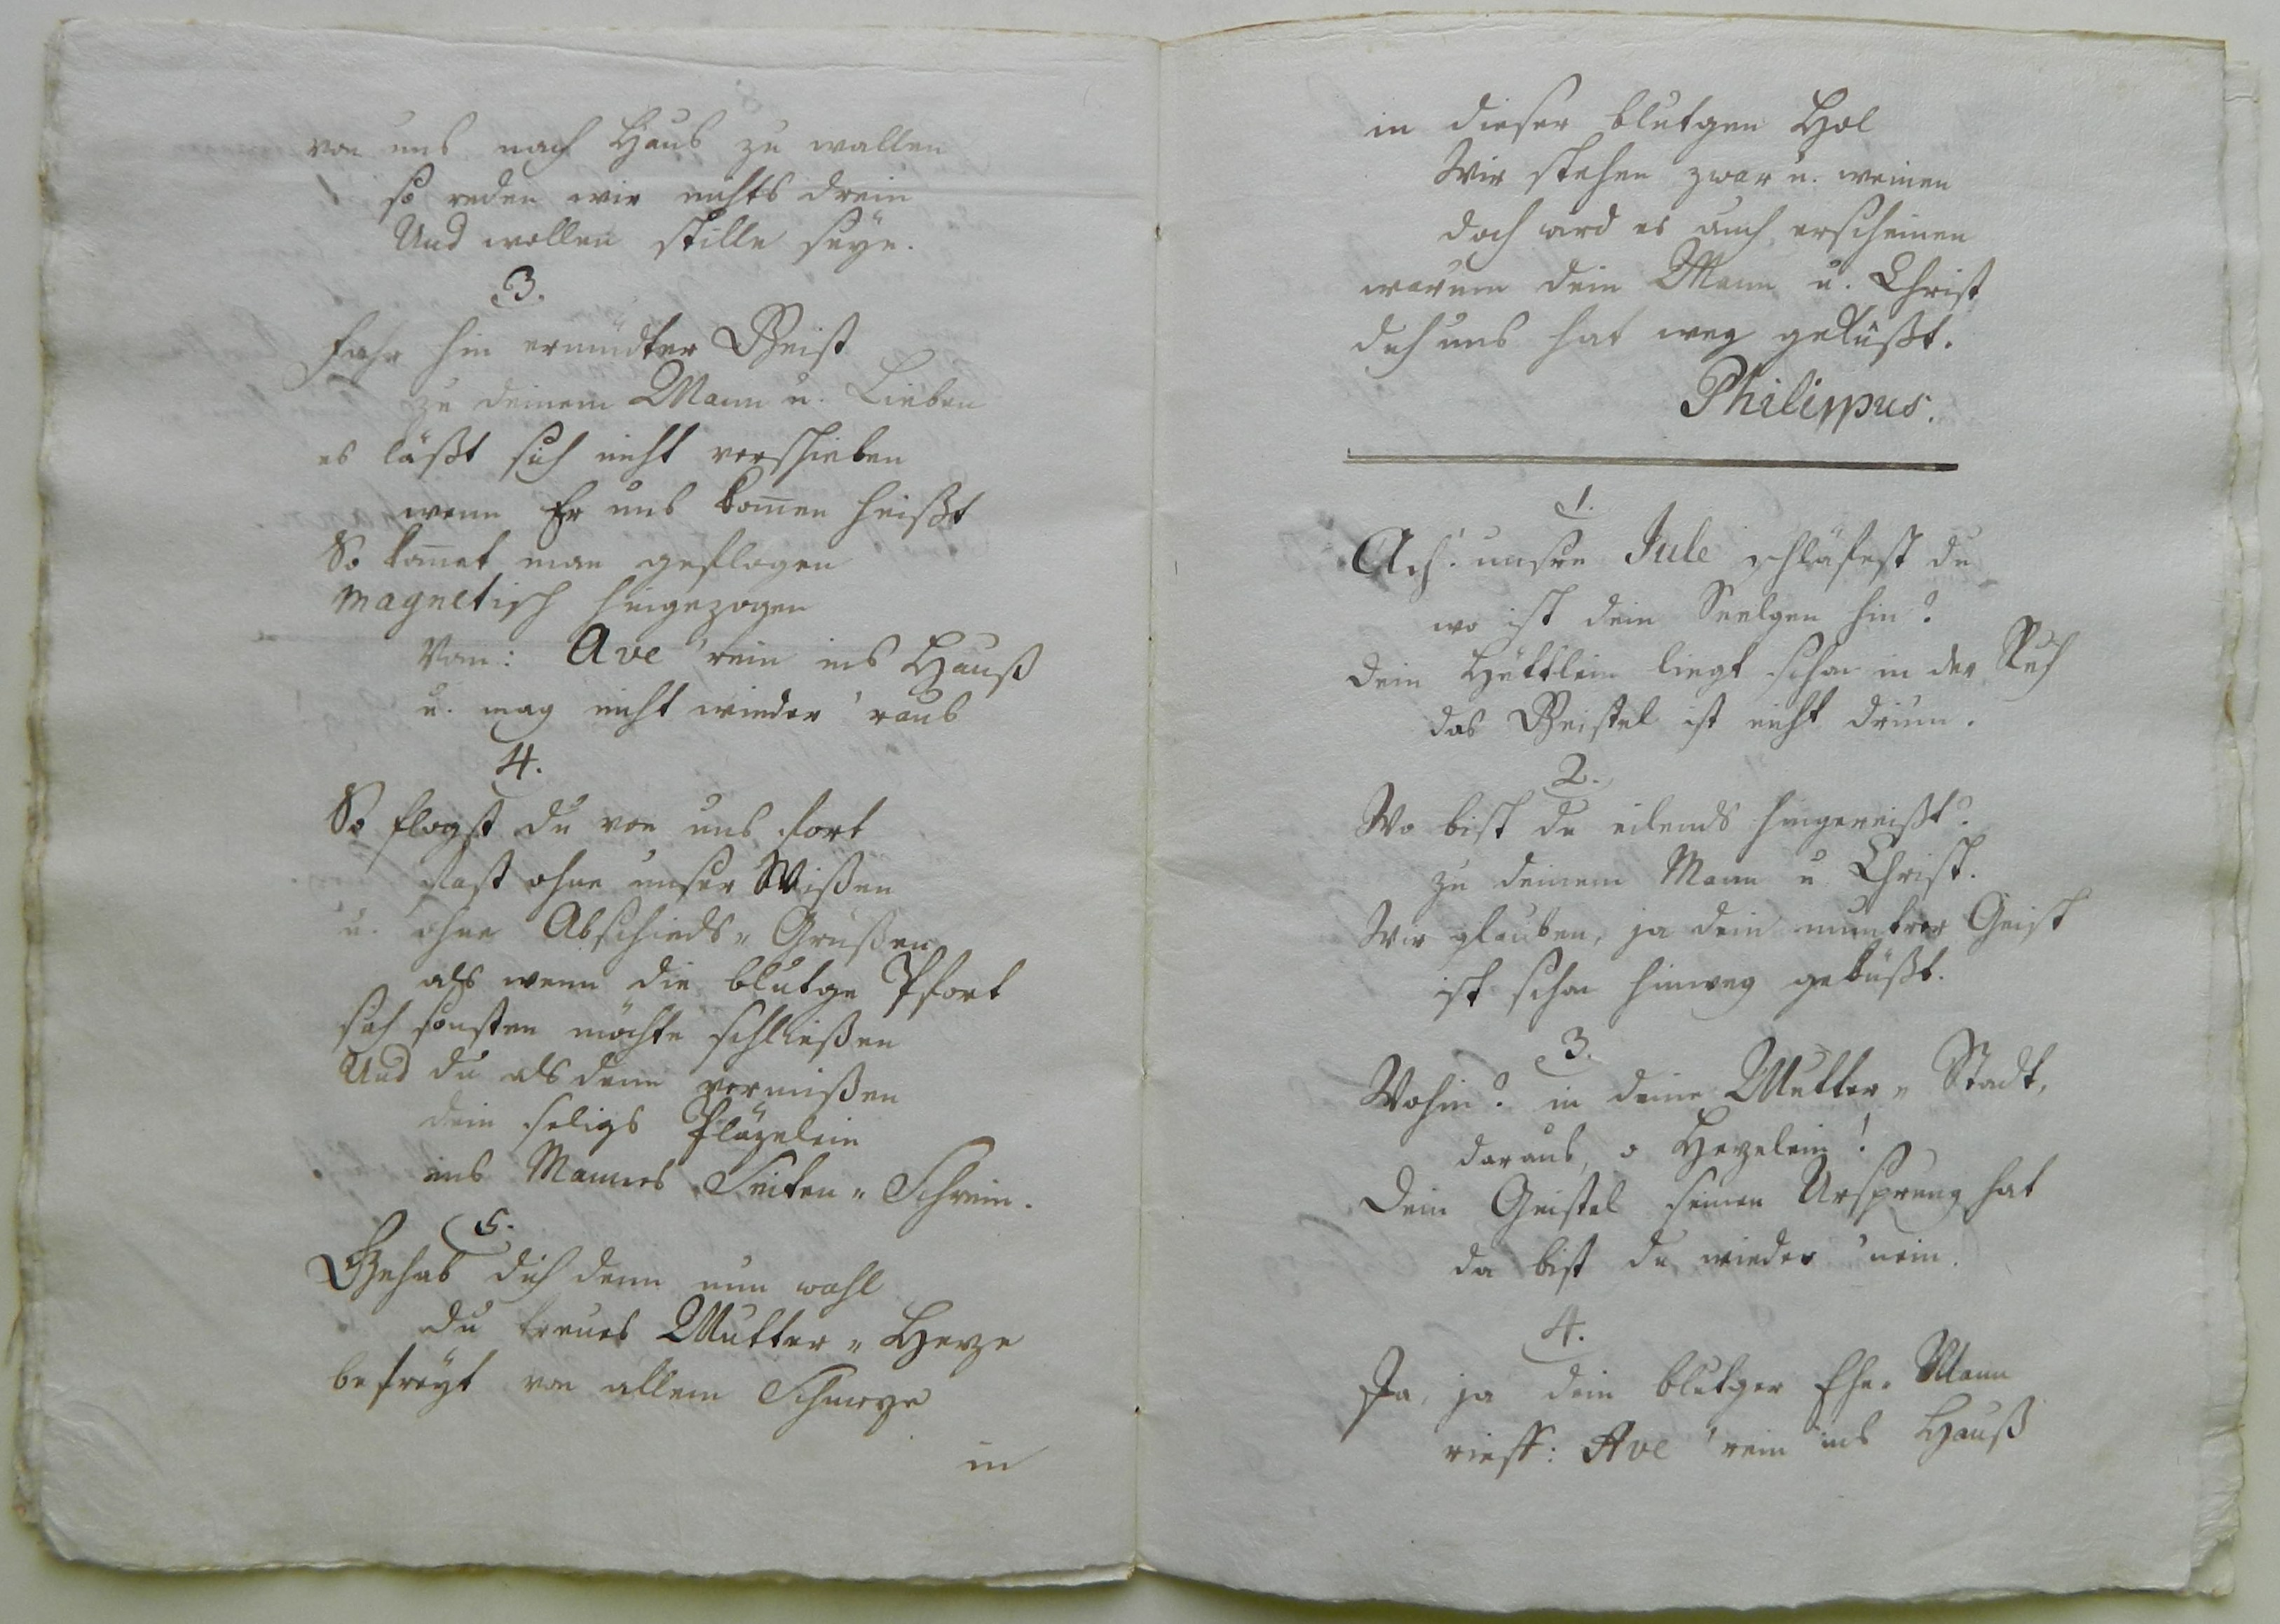 von uns nach Haus zu wallen
so reden wir nichts drein
Und wollen stille seyn.
3.
Fahr hin ermüdter Geist
zu deinem Mann u. Lieben
es läßt sich nicht verschieben
wenn Er uns kom̅en heißt
So kom̅et man geflogen
magnetisch hingezogen
Vom: Ave 'rein ins Hauß
u. mag nicht wieder 'raus
4.
So flogst du von uns fort
fast ohne unser Wißen
u. ohne Abschieds„ Grüßen
als wenn die blutge Pfort
sich sonsten möchte schließen
Und du als denn vermißen
dein seligs Pläzelein
ins Mannes Seiten„ Schrein.
5.
Gehab dich denn nun wohl
du treues Mutter„ Herze
befreyt von allem Schmerze
in
in dieser blutgen Höl
Wir stehen zwar u. weinen
doch wird es auch erscheinen
warum dein Mann u. Christ
dich uns hat weg geküßt.
Philippus.
1.
Ach! unsre Jule schläfest du
wo ist dein Seelgen hin?
Dein Hüttlein liegt schon in der Ruh
das Geistel ist nicht drinn.
2.
Wo bist du eilends hingereißt?
zu deinem Mann u Christ.
Wir glauben, ja dein muntrer Geist
ist schon hinweg geküßt.
3.
Wohin? in deine Mutter„ Stadt,
daraus, o Herzelein!
Dein Geistel seinen Ursprung hat
da bist du wieder 'nein.
4.
Ja, ja dein blutger Ehe„ Mann
rieff: Ave 'rein ins Hauß